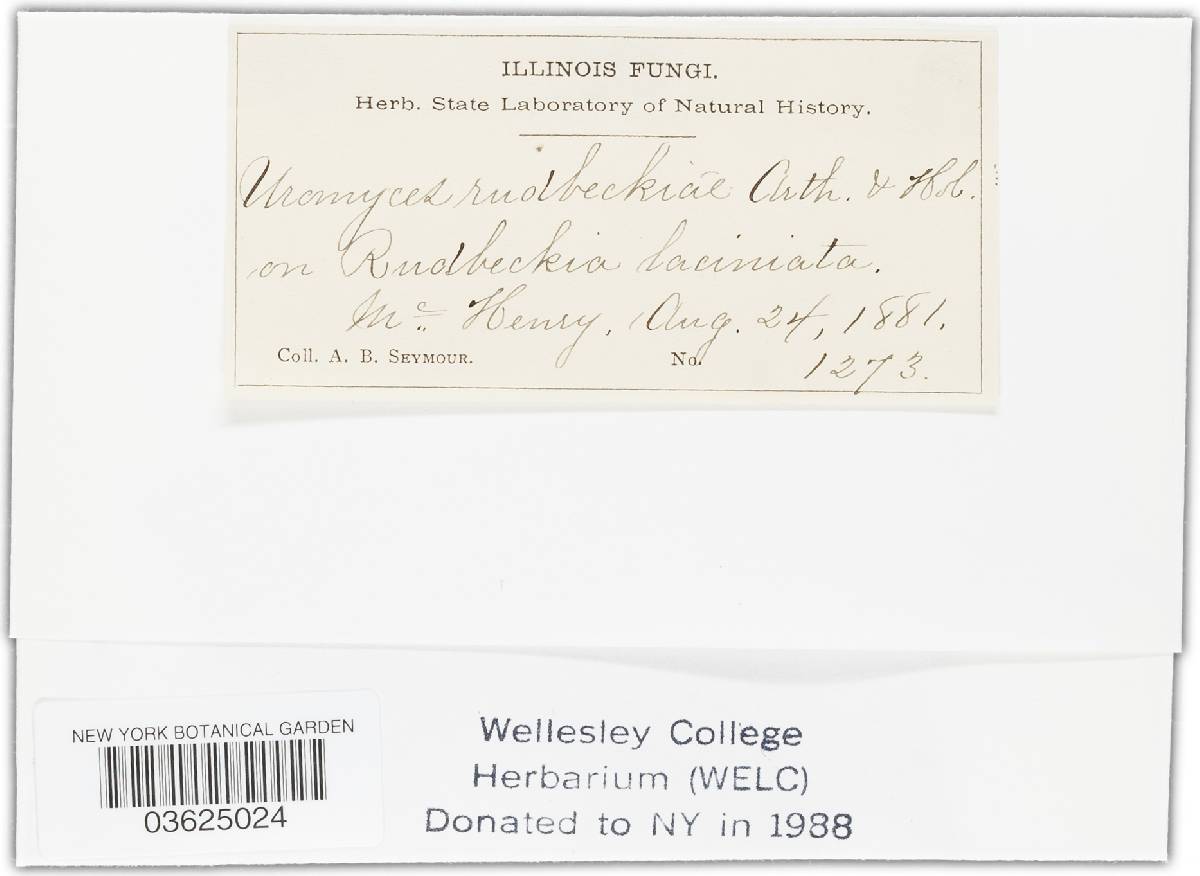 ILLINOIS FUNGI.
Herb. State Laboratory of Natural History.
Uromyces rudbeckiae Arth. & Hol.
on Rudbeckia laciniata.
Mc. Henry, Aug. 24, 1881.
Coll. A. B. SEYMOUR. No. 1273.
NEW YORK BOTANICAL GARDEN
03625024
Wellesley College
Herbarium (WELC)
Donated to NY in 1988